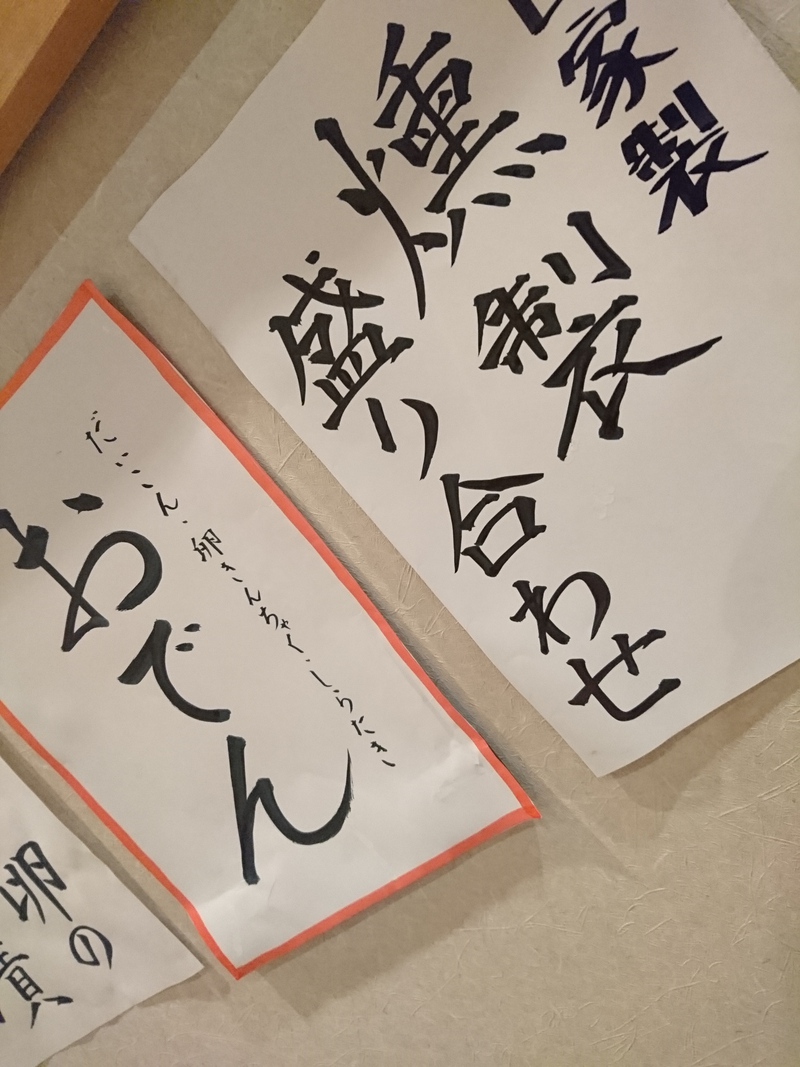 家製
燻製
盛り合わせ
だいこん・卵きんちゃく・しらたき
おでん
卵の
漬